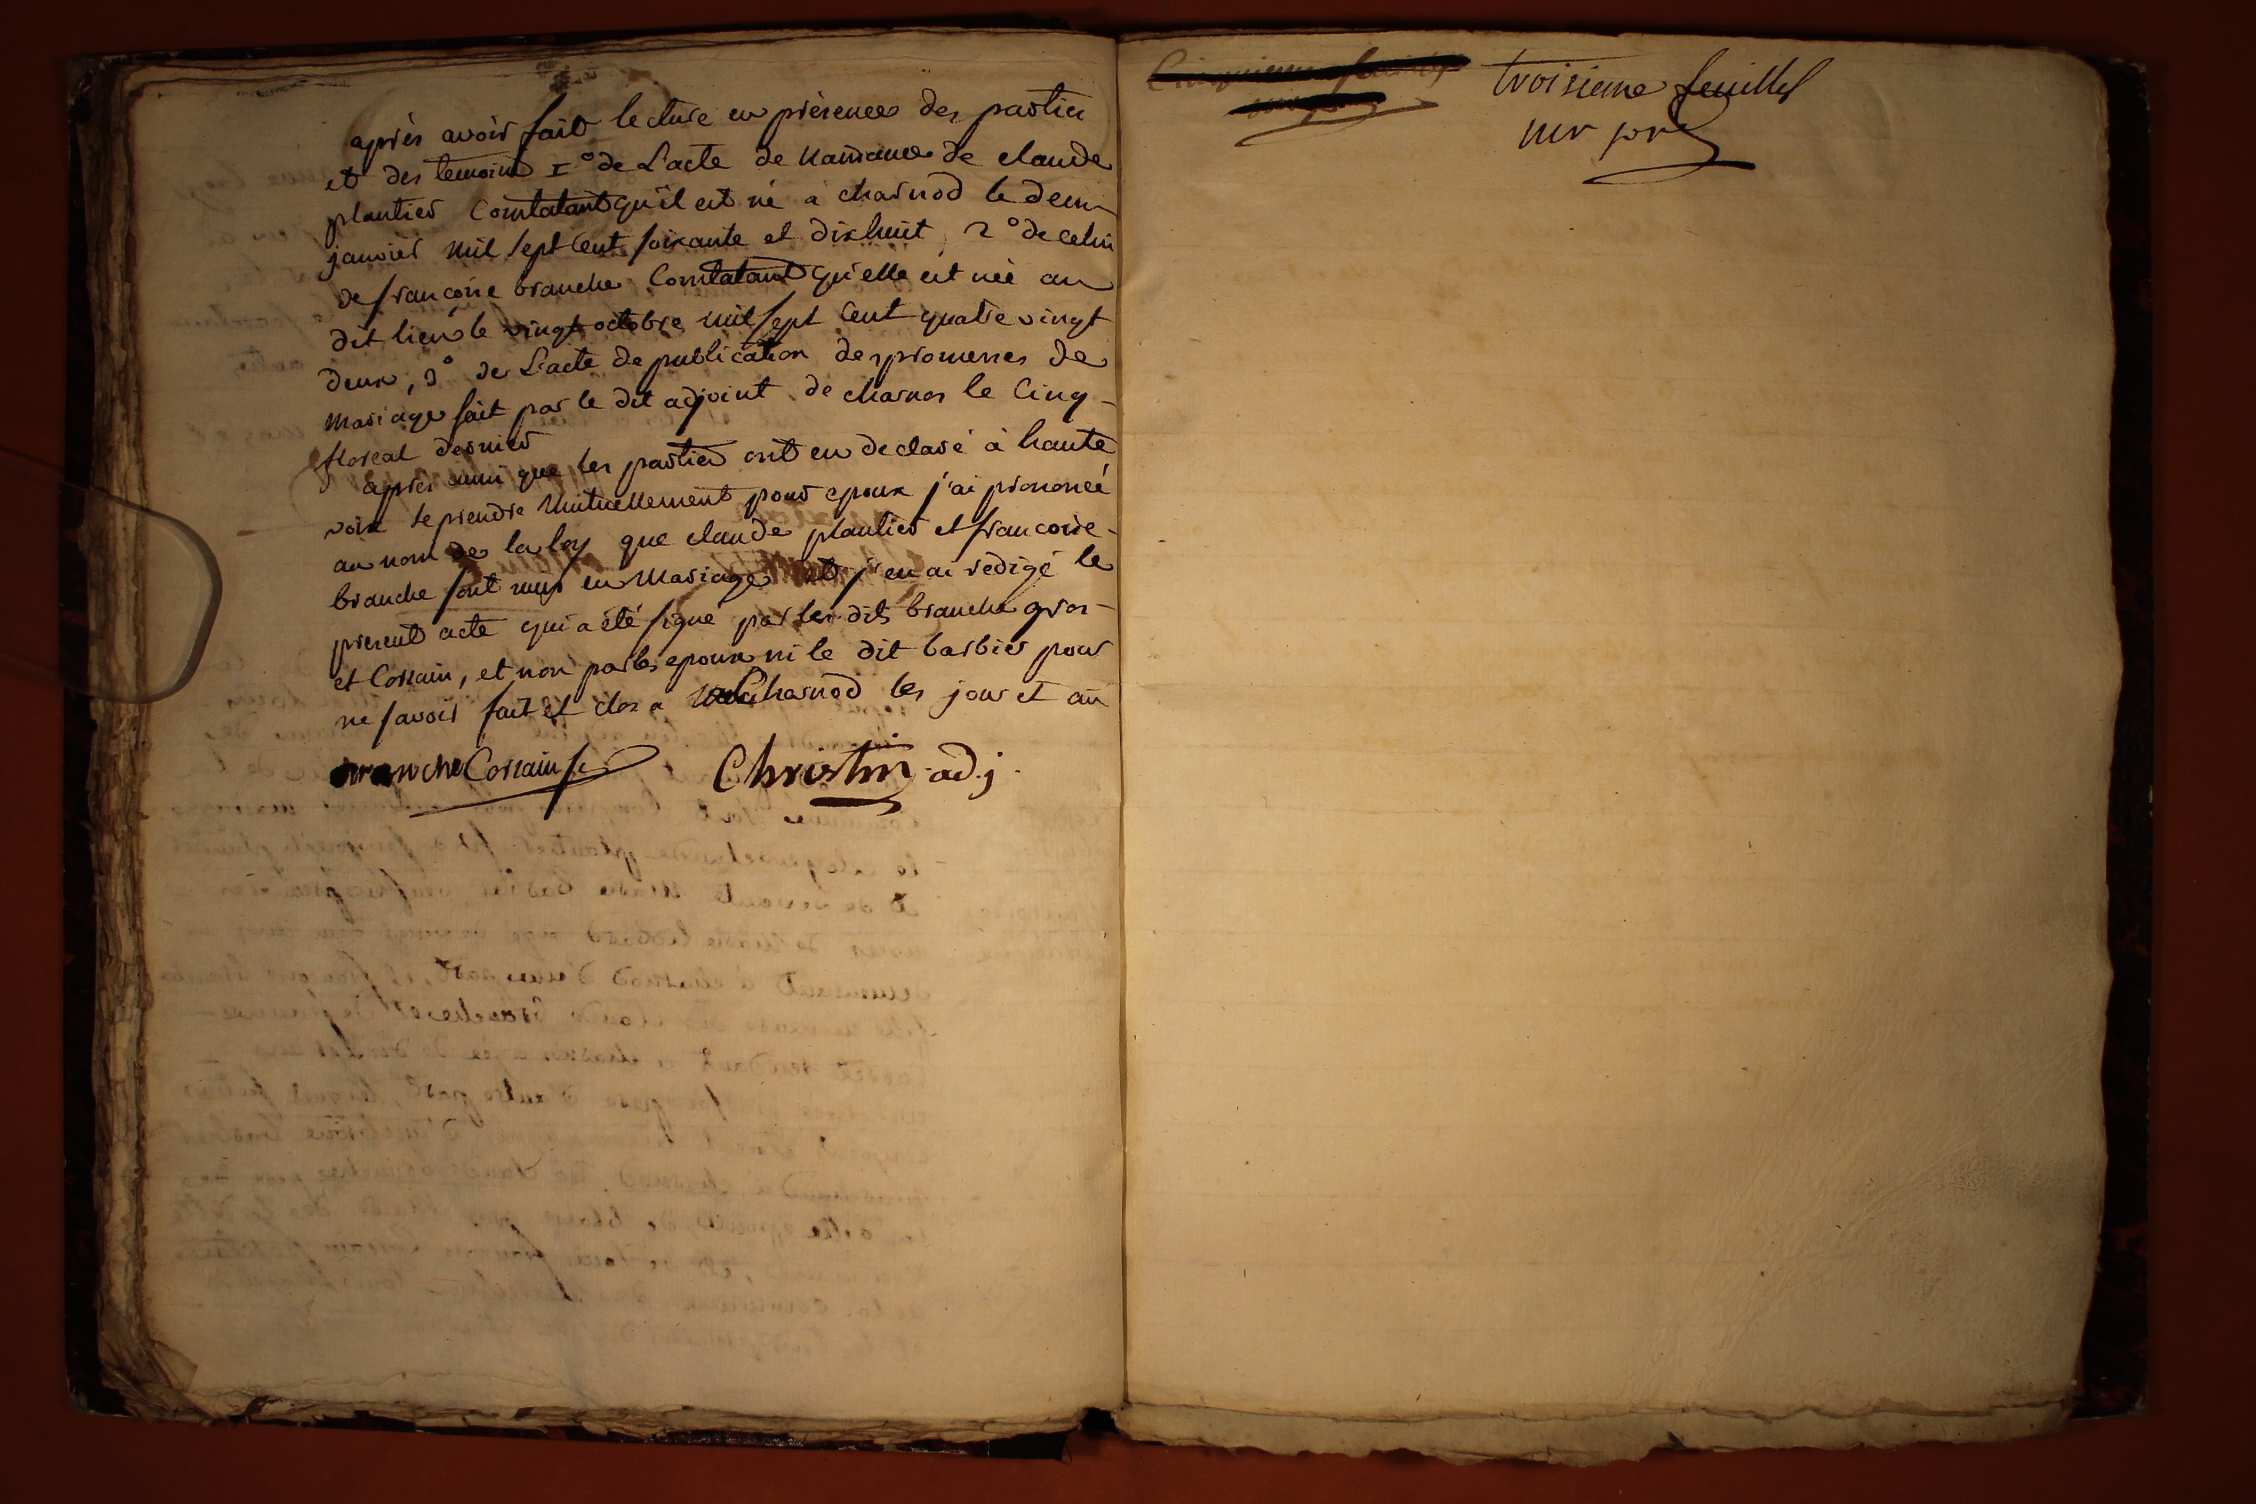 après avoir fait lecture en présence des parties
et des temoins 1° de L'acte de naissance de claude
plantier Constatant qu'il est né a charnod le deux
janvier mil sept Cent soixante et dix huit, 2° de celui
de francoise branche Constatant qu'elle est née au
dit lieu le vingt octobre mil sept Cent quatre vingt
deux, 3° de L'acte de publication des promesses de
mariage fait par le dit adjoint de charnos le Cinq
floreal dernier
après aussi que les parties ont eu declaré à haute
voix se prendre mutuellement pour epoux j'ai prononcé
au nom de la loy que claude plantier et francoise
branche sont unys en mariage et j'en ai rédigé le
present acte qui a été signé par les dits branche gros
et Corrain, et non par les epoux ni le dit barbier pour
ne savoir fait et clos a Charnod les jour et an
branche Corrain Christin adj.
Cinquieme feuillet troisieme feuillet